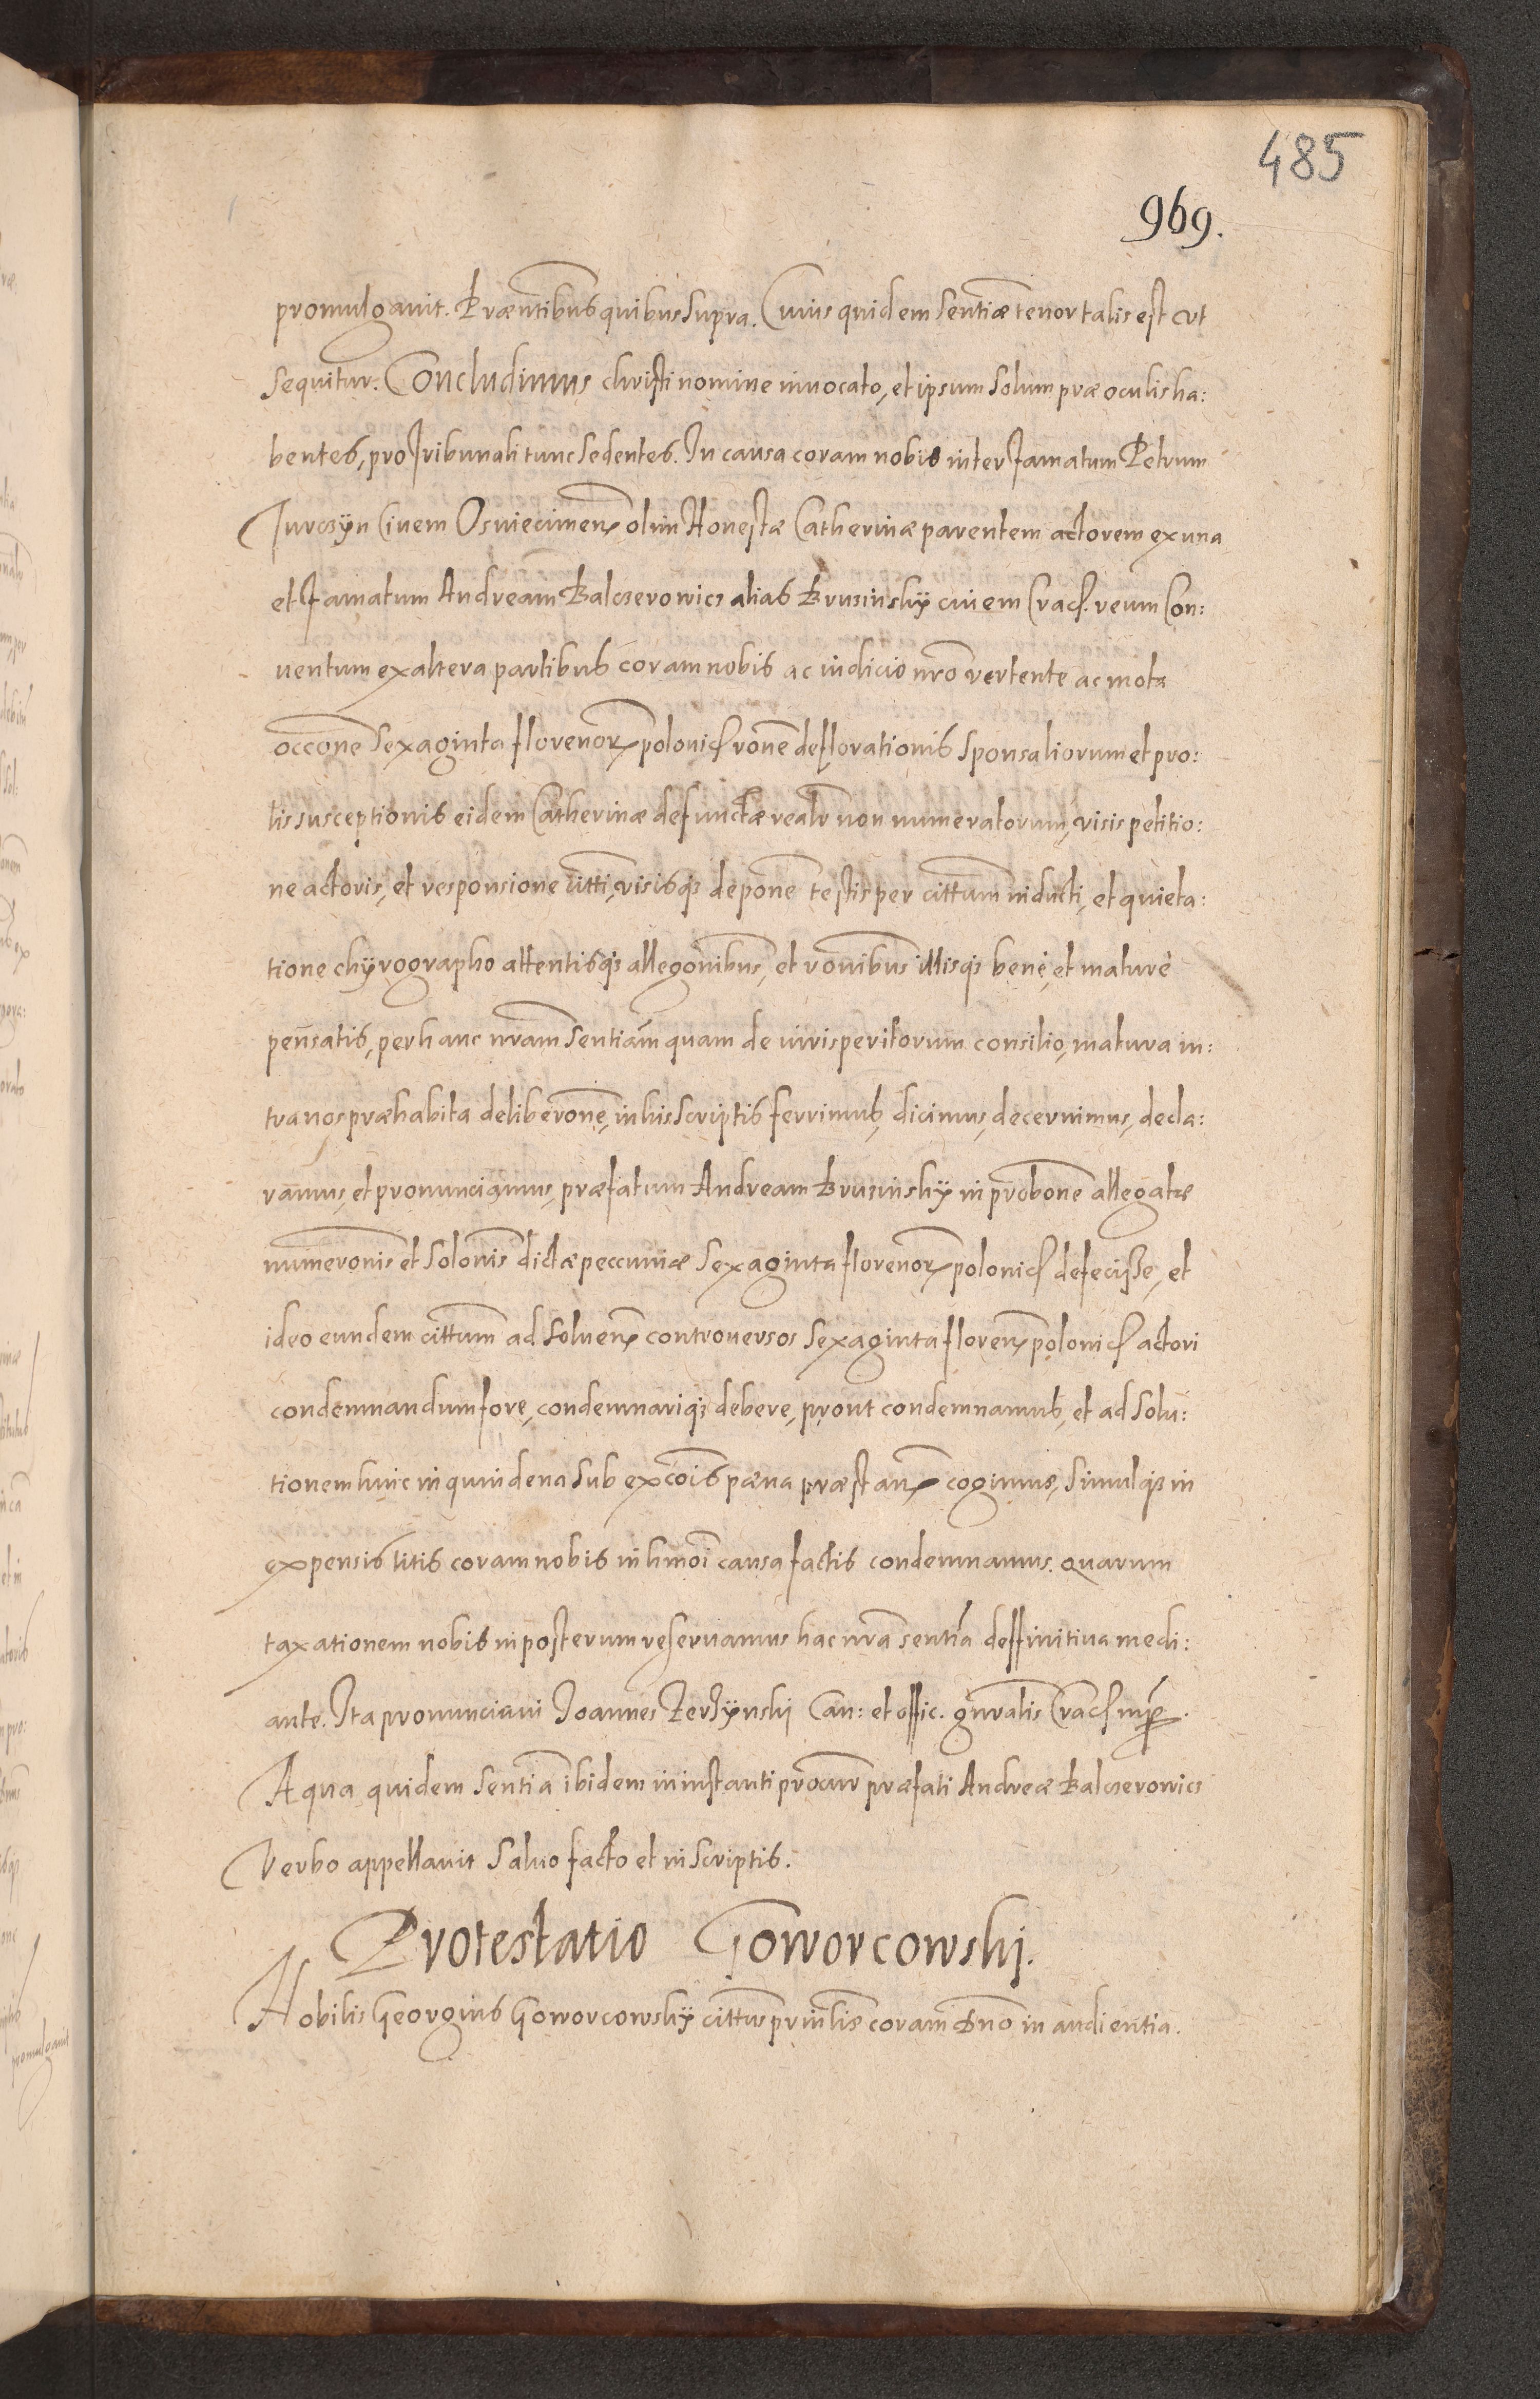 485
969.
promulgauit. Præntibus quibus supra. Cuius quidem sentiæ tenor talis est vt
sequitur. Concludimus christi nomine inuocato, et ipsum solum præ oculis ha:
bentes, pro Tribunali tunc sedentes. In causa coram nobis inter famatum Petrum
Jurczÿn Ciuem Osuiecimen olim Honestæ Catherinæ parentem actorem ex una
et famatum Andream Balczerowicz alias Brusinskÿ ciuem Crac. reum Con:
uentum ex altera partibus coram nobis ac iudicio nro vertente ac mota
occone sexaginta florenor polonic rone deflorationis sponsaliorum et pro:
lis susceptionis eidem Catherinæ defunctæ realr non numeratorum, visis petitio:
ne actoris, et responsione citti, visisq depone testis per cittum inducti, et quieta:
tione chÿrographo attentisq allegonibus, et ronibus illisq bene, et maturè
pensatis, per hanc nram sentiam quam de iurisperitorum consilio, matura in:
tra nos præhabita deliberone, in his scriptis ferrimus, dicimus, decernimus, decla:
ramus, et pronunciamus, præfatum Andream Brusinskÿ in probone allegatæ
numeronis et solonis dictæ peccuniæ sexaginta florenor polonic defecisse, et
ideo eundem cittum ad soluen controuersos sexaginta floren polonic actori
condemnandum fore, condemnariq debere, prout condemnamus, et ad solu:
tionem huic in quindena sub excois pæna præstan cogimus, simulq in
expensis litis coram nobis in hmoi causa factis condemnamus. quarum
taxationem nobis in posterum reseruamus hac nra sentia deffinitiua medi:
ante. Ita pronunciaui Joannes Zerzÿnski Can: et offic. gnralis Crac mp.
A qua quidem sentia ibidem in instanti procur præfati Andreæ Balczerowicz
Verbo appellauit saluo facto et in scriptis.
Protestatio Goworcowski.
Nobilis Georgius Goworcowskÿ cittus prinlis coram Dno in audientia.